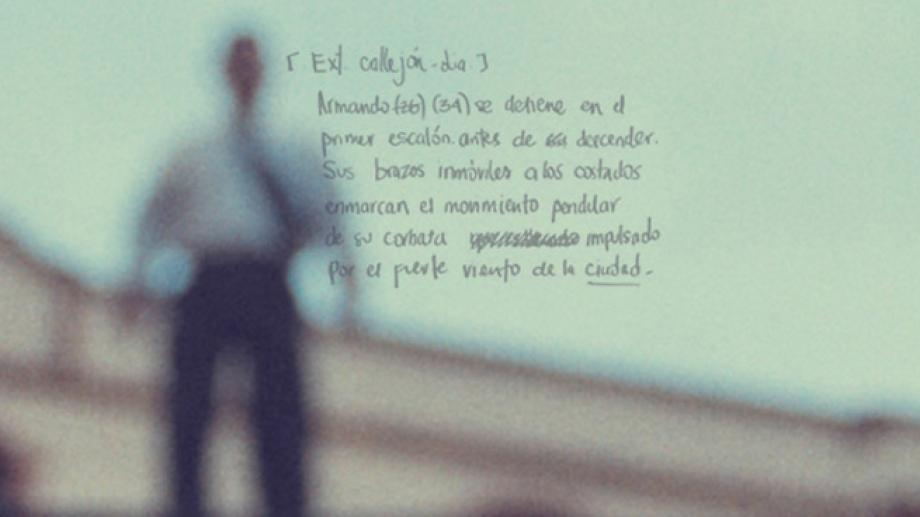 [ Ext. callejón - dia. ]
Armando (26) (34) se detiene en el
primer escalón. antes de descender.
Sus brazos inmóviles a los costados
enmarcan el movimiento pendular
de su corbata impulsado
por el fuerte viento de la ciudad.